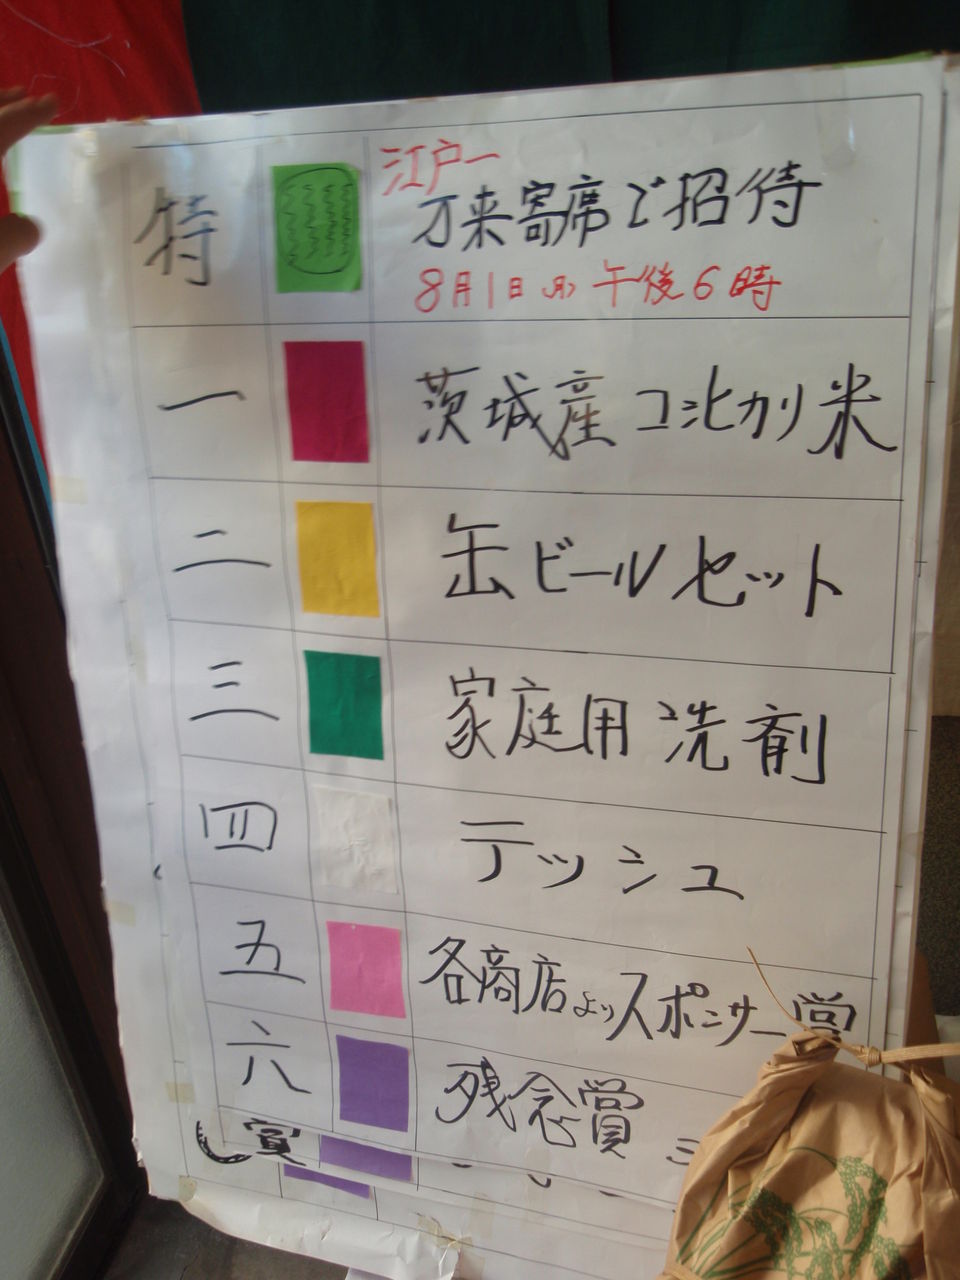 特
江戸一
万来寄席ご招待
8月1日(月)午後6時
一
茨城産コシヒカリ米
二
缶ビールセット
三
家庭用洗剤
四
テッシュ
五
各商店よりスポンサー賞
六
残念賞
賞